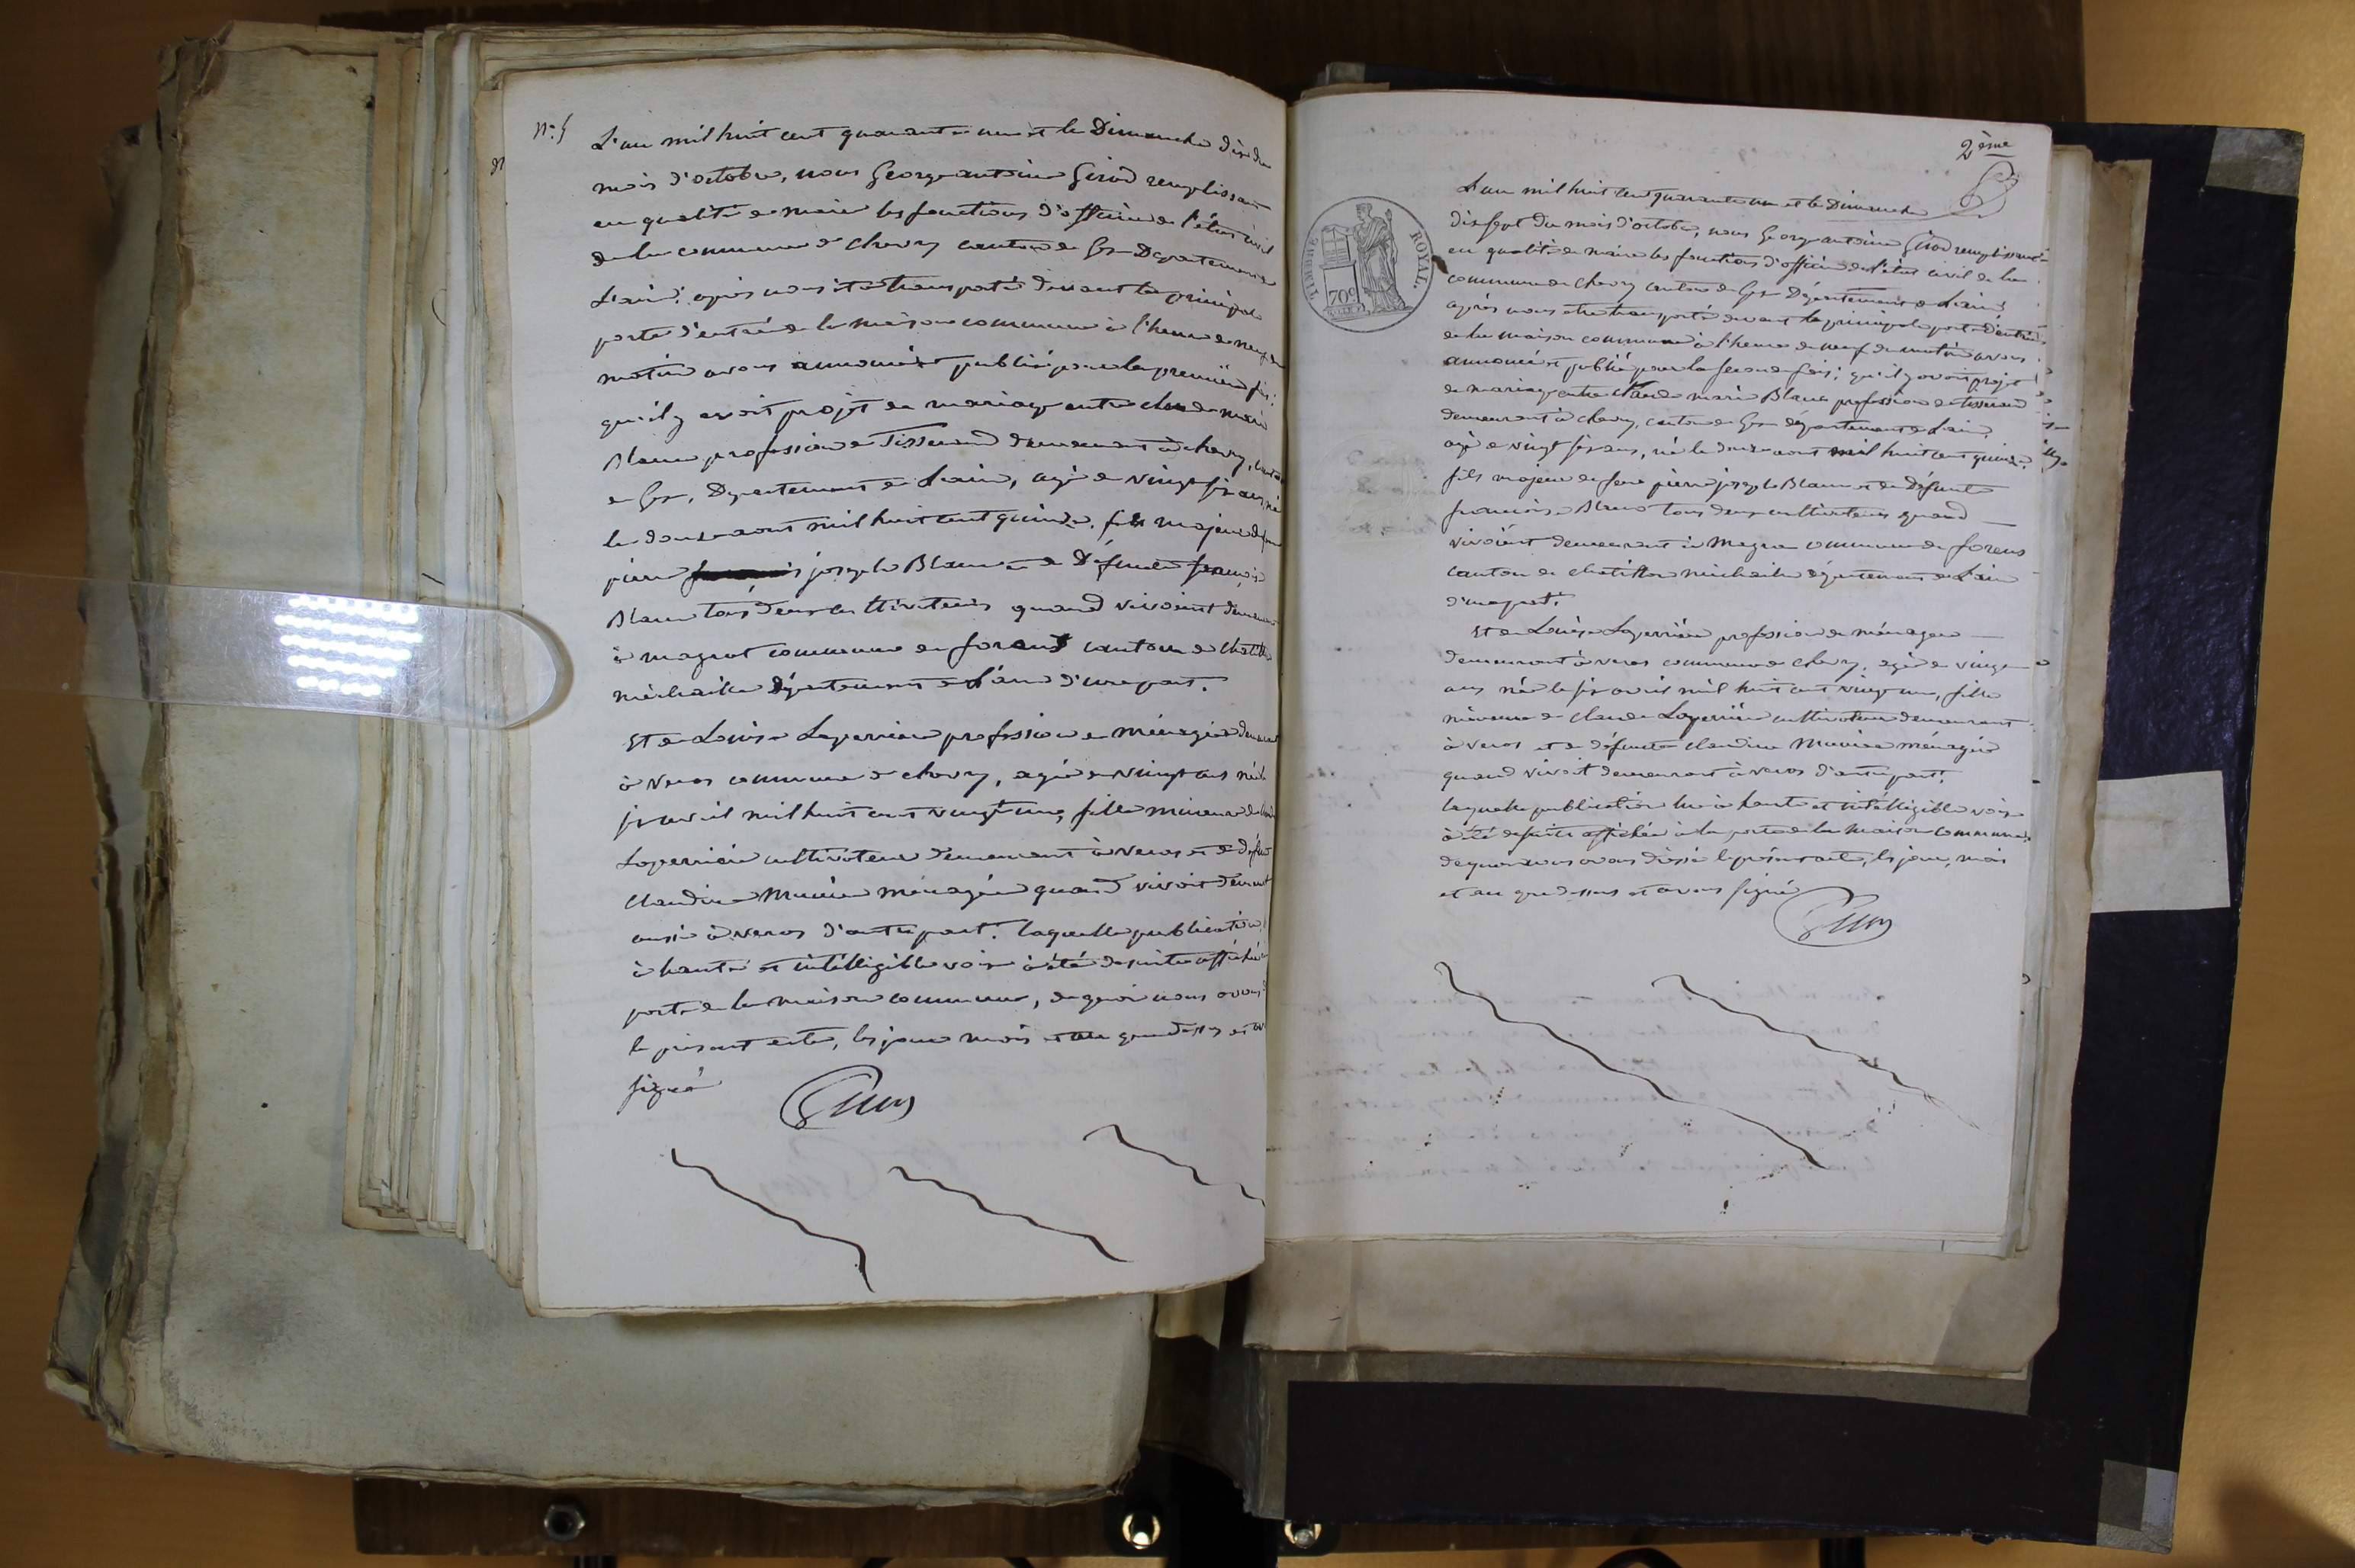 N°. 5
L'an mil huit cent quarante un et le Dimanche dix du
mois d'octobre, nous George antoine Girod remplissant
en qualité de maire les fonctions d'officier de l'état civil
de la commune de chevry canton de Gex Departement de
L'ain; après nous être transporté devant la principale
porte d'entrée de la maison commune à l'heure de neuf du
matin avons annoncé et publié pour la première fois:
qu'il y avoit projet de mariage entre claude marie
Blanc profession de Tisserand demeurant à chevry, canton
de Gex, Departement de Lain, agé de vingt six ans, né
le douze aout mil huit cent quinze, fils majeur de feu
pierre joseph Blanc et de Défunte françoise
Blanc tous deux cultivateurs quand vivoient demeurant
à magrat commune de forens canton de Chatillon
michaille département de L'ain d'une part.
Et de Louise Laperrière profession de ménagère demeurant
à veros commune de chevry, agée de vingt ans née le
six avril mil huit cent vingt un, fille mineure de Claude
Laperrière cultivateur demeurant à veros et de défunte
Claudine Munier ménagère quand vivoit demeurant
aussi à veros d'autre part. laquelle publication
à haute et intélligible voix à été de suite affichée
porte de la maison commune, de quoi nous avons
le présent acte, les jour mois et an que dessus et avons
signé
Girod
2ème
TIMBRE ROYAL.
70c
L'an mil huit cent quarante un et le Dimanche
dix sept du mois d'octobre, nous George antoine Girod remplissant
en qualité de maire les fonctions d'officier de l'état civil de la
commune de Chevry canton de Gex Département de Lain;
après nous etre transporté devant la principale porte d'entrée
de la maison commune à l'heure de neuf du matin avons
annoncé et publié pour la seconde fois; qu'il y avoit projet
de mariage entre Claude marie Blanc profession de tisserand
demeurant à chevry, canton de Gex département de Lain,
agé de vingt six ans, né le douze aout mil huit cent quinze,
fils majeur de feu pierre joseph Blanc et de Défunte
françoise Blanc tous deux cultivateurs quand
vivoient demeurant à magra commune de forens
canton de chatillon michaille département de Lain
d'une part.
Et de Louise Laperrière profession de ménagère
demeurant à veros commune de chevry, agée de vingt
ans née le six avril mil huit cent vingt un, fille
mineure de claude Laperrière cultivateur demeurant
à veros et de défunte claudine Munier ménagère
quand vivoit demeurant à veros d'autre part.
laquelle publication lue à haute et intélligible voix
à été de suite affichée à la porte de la maison commune,
de quoi nous avons dressé le présent acte, les jour, mois
et an que dessus et avons signé
Girod